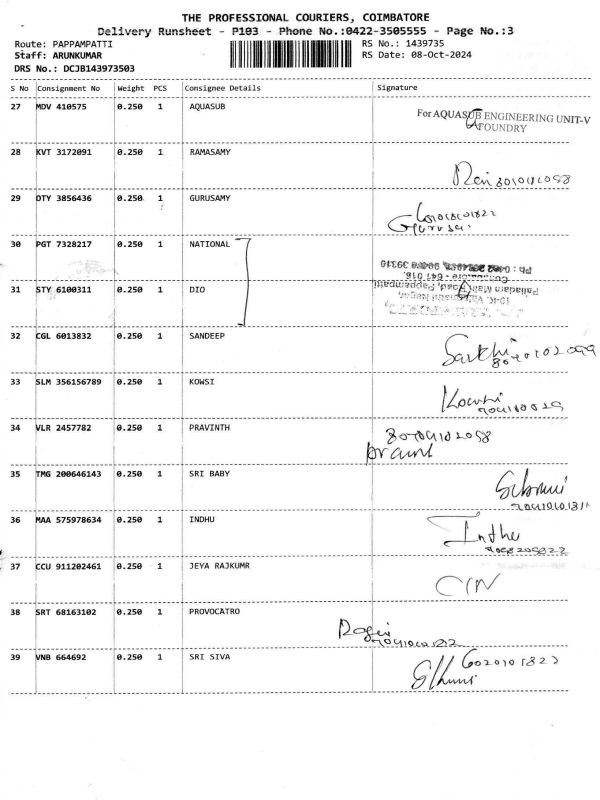 THE PROFESSIONAL COURIERS, COIMBATORE
Delivery Runsheet - P103 - Phone No.:0422-3505555 - Page No.:3
Route: PAPPAMPATTI RS No.: 1439735
Staff: ARUNKUMAR RS Date: 08-Oct-2024
DRS No.: DCJB143973503
S No Consignment No Weight PCS Consignee Details Signature
27 MDV 410575 0.250 1 AQUASUB
For AQUASUB ENGINEERING UNIT-V
FOUNDRY
28 KVT 3172091 0.250 1 RAMASAMY
29 DTY 3856436 0.250 1 GURUSAMY
30 PGT 7328217 0.250 1 NATIONAL
31 STY 6100311 0.250 1 DIO
Palladam Main Road, Pappampatti
Coimbatore - 641 016.
32 CGL 6013832 0.250 1 SANDEEP
Sarkhi
33 SLM 356156789 0.250 1 KOWSI
Kowsi
34 VLR 2457782 0.250 1 PRAVINTH
35 TMG 200646143 0.250 1 SRI BABY
36 MAA 575978634 0.250 1 INDHU
Indhu
37 CCU 911202461 0.250 1 JEYA RAJKUMR
38 SRT 68163102 0.250 1 PROVOCATRO
39 VNB 664692 0.250 1 SRI SIVA